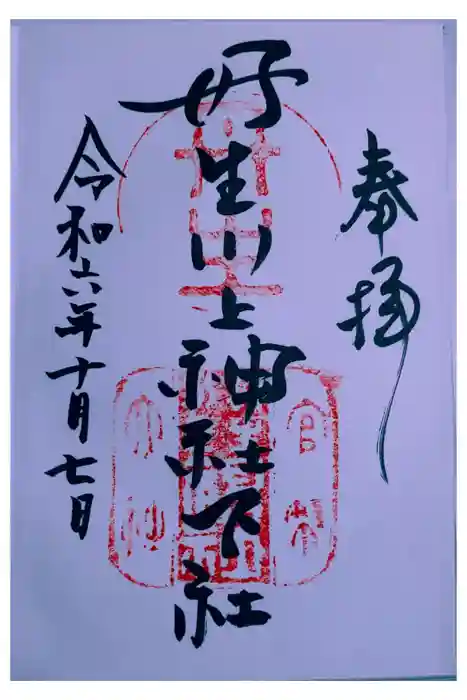 奉拝
丹生川上神社下社
令和六年十月七日
官幣
大社